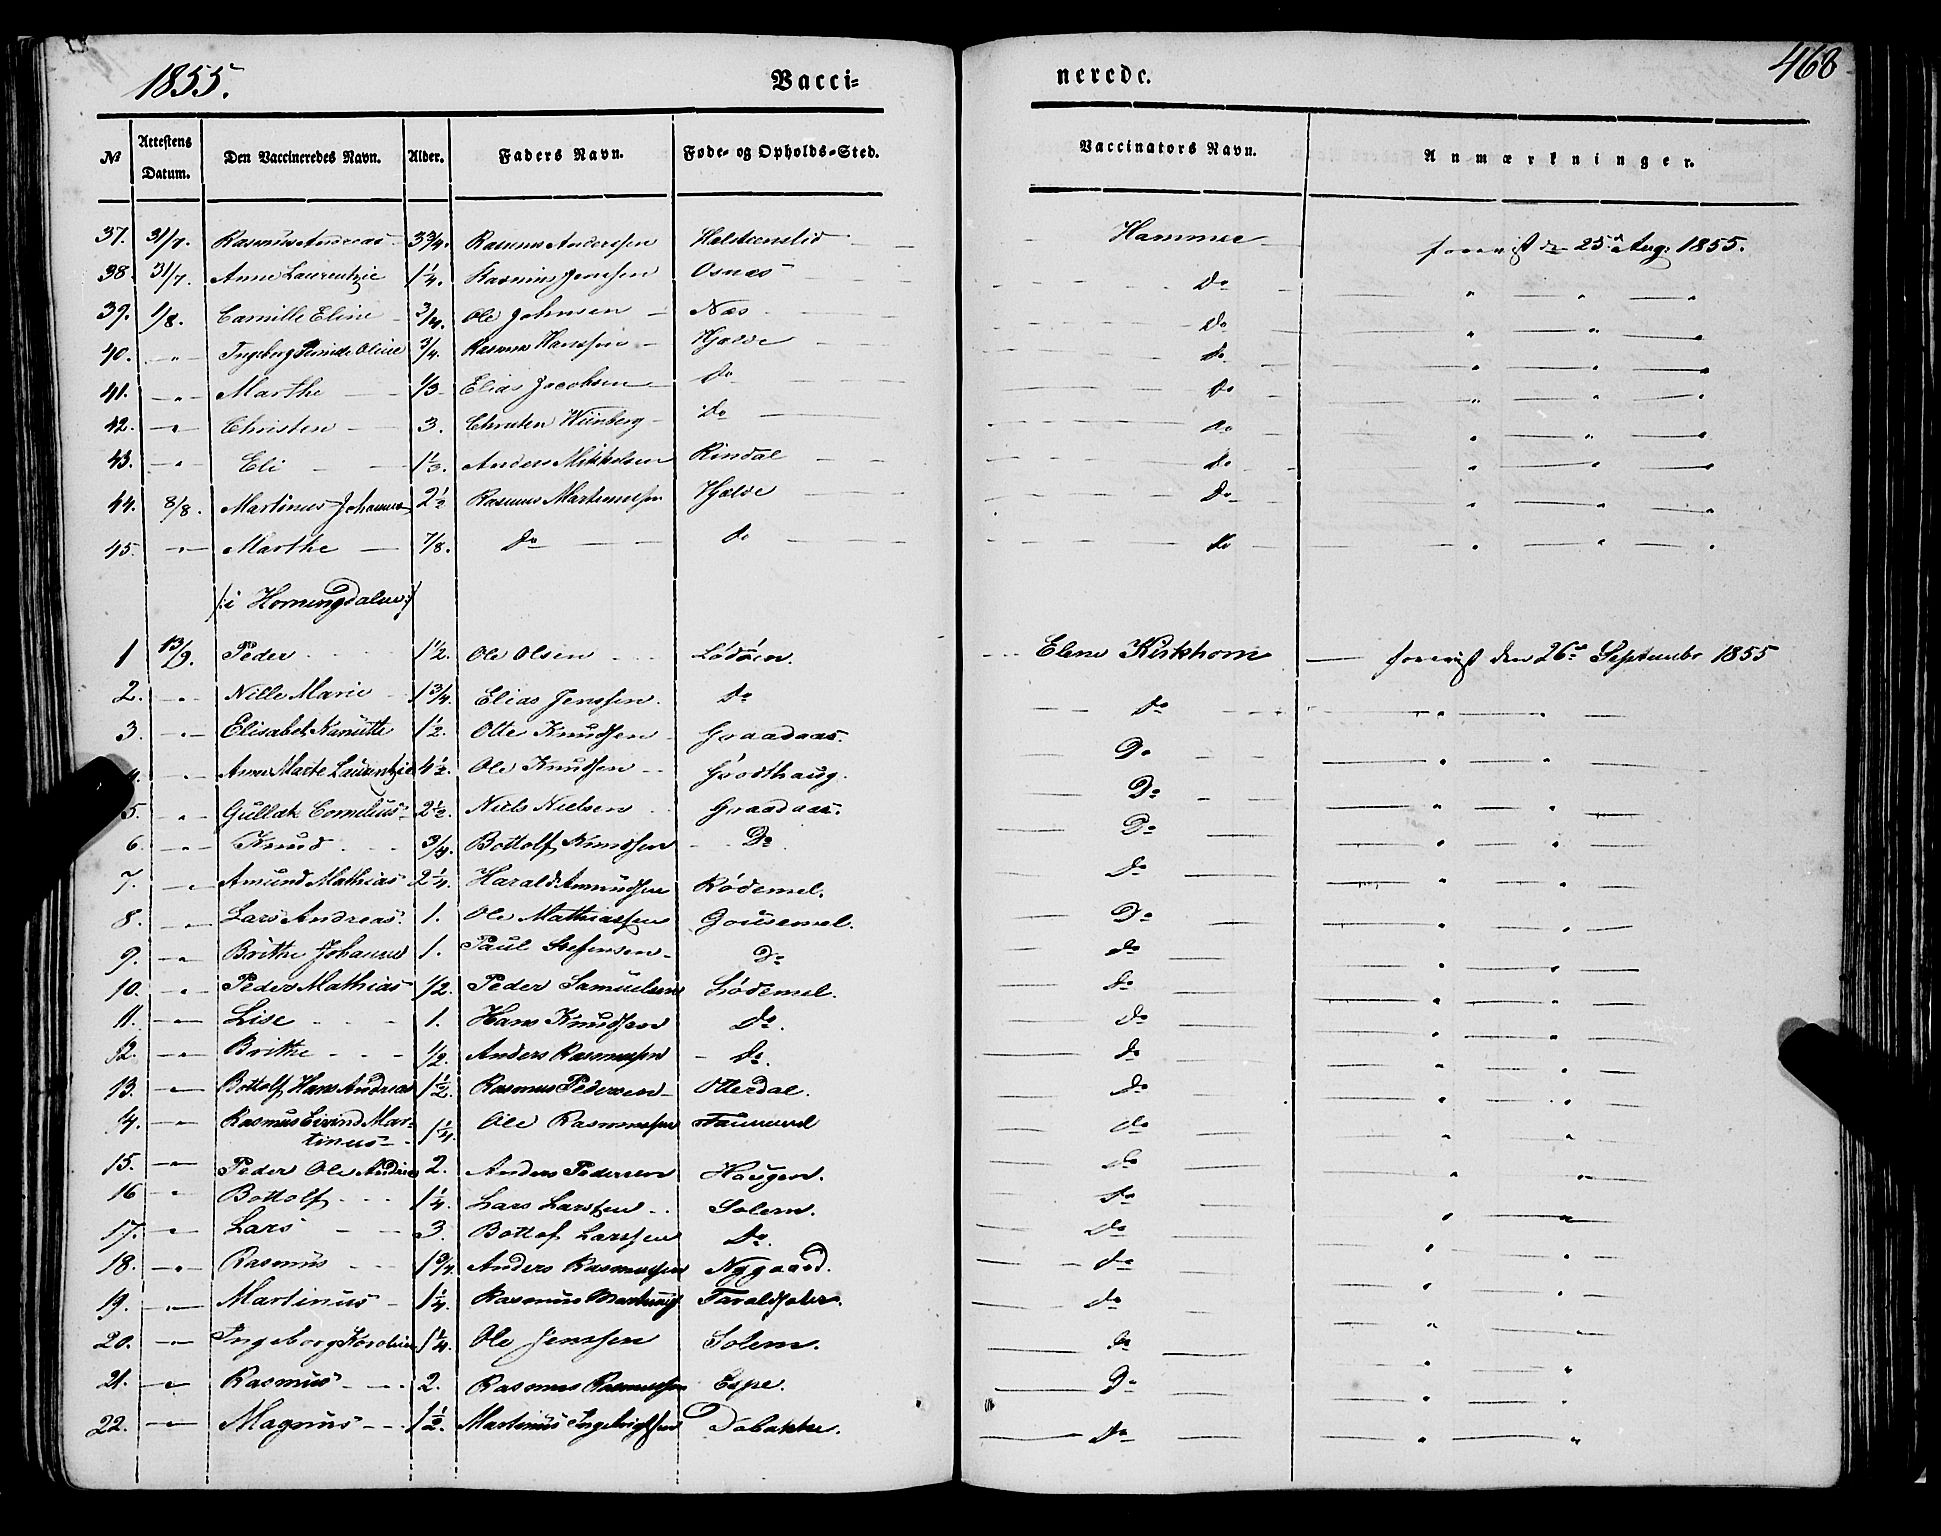 1855. Vacci- nerede. 468
№ Attestens Datum. Den Vaccineredes Navn. Alder. Faders Navn. Føde- og Opholds-Sted. Vaccinators Navn. Anmærkninger.
37. 31/7. Rasmus Andreas 3 3/4. Rasmus Anderssen Halsteenslid Hammer forevist den 25d Aug. 1855.
38. 31/7. Anne Laurentzie 1 1/4. Rasmus Jenssen Osnes Do " " "
39. 1/8. Camille Eline 3/4. Ole Johnsen Nes Do " " "
40. " Ingeborg Oline 3/4. Rasmus Hanssen Hjelde do " " "
41. " Marthe 1/3 Elias Jacobsen do do " " "
42. " Christen 3. Christen Wiinberg do do " " "
43. " Eli 1 1/3. Anders Mikkelsen Rindal do " " "
44. 8/8. Martinus Johannes 2 1/2 Rasmus Martinussen Hjelde Do " " "
45. " Marthe 7/8. do do do " " "
/: i Horningdalen :/
1 13/9. Peder 1 1/2. Ole Olsen Lødøen. Elene Kirkhorn forevist den 26de September 1855
2. " Nille Marie 1 3/4. Elias Jenssen. do do " "
3. " Elisabet Nanutte 1 1/2. Otte Knudsen Graadaas. Do " "
4. " Anne Marte Laurentzie 4 1/2. Ole Knudsen Grodthaug. Do " "
5. " Gullak Cornelius 2 1/2. Niels Nielsen Graadaas. Do " "
6. " Knud 3/4. Bottolf Knudsen Do do " "
7. " Amund Mathias 2 1/4. Harald Amundsen Rødemel. do " "
8. " Lars Andreas 1. Ole Mathiassen Gousemel. Do " "
9. " Brithe Johanne 1. Paul Stefensen Do do " "
10. " Peder Mathias 1/2. Peder Samuelsen Lødemel. do " "
11. " Lise 1. Hans Knudsen do. do " "
12. " Brithe 1/2. Anders Rasmussen do. do " "
13. " Bottolf Hans Andreas 1 1/2. Rasmus Pedersen Otterdal. do " "
14. " Rasmus Eivind Mar-
tinus 1 1/4. Ole Rasmussen do " "
15. " Peder Ole Andreas 2. Anders Pedersen Haugen. do " "
16 " Bottolf 1 1/4. Lars Larssen Solem. do " "
17. " Lars 3. Bottof Larssen Do. do " "
18. " Rasmus 1 3/4. Anders Rasmussen Nygaard. do " "
19. " Martinus 1 1/4. Rasmus Taraldseter. do " "
20. " Ingeborg Karoline 1 1/4. Ole Jenssen Solem. do " "
21. " Rasmus 2. Rasmus Rasmussen Espe. Do " "
22. " Magnus 1 1/2. Martinus Ingebrigtsen Dobakke. do " "